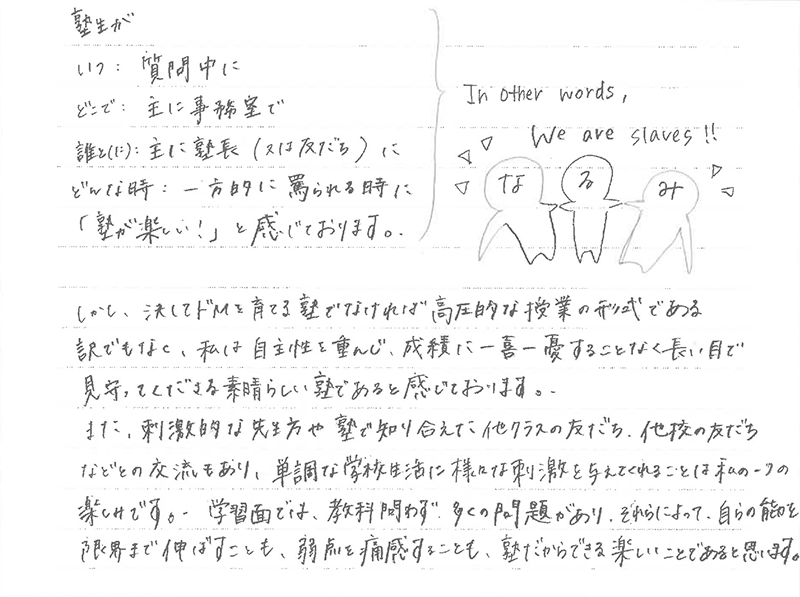 塾生が
いつ：質問中に
どこで：主に事務室で
誰と(に)：主に塾長（又は友だち）に
どんな時：一方的に罵られる時に
「塾が楽しい！」と感じております。
In other words,
We are slaves!!
な る み
しかし、決してドMを育てる塾でなければ高圧的な授業の形式である
訳でもなく、私は自主性を重んじ、成績に一喜一憂することなく長い目で
見守ってくださる素晴らしい塾であると感じております。
また、刺激的な先生方や塾で知り合えた他クラスの友だち、他校の友だち
などとの交流もあり、単調な学校生活に様々な刺激を与えてくれることは私の一つの
楽しみです。学習面では、教科問わず、多くの問題があり、それらによって、自らの能力を
限界まで伸ばすことも、弱点を痛感することも、塾だからできる楽しいことであると思います。